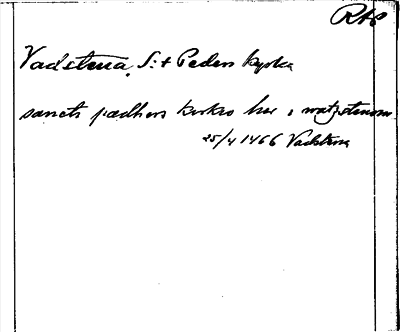 RAP
Vadstena, S:t Peders kyrka
sancts pædhers kirkio her i watzstenom
25/4 1466 Vadstena